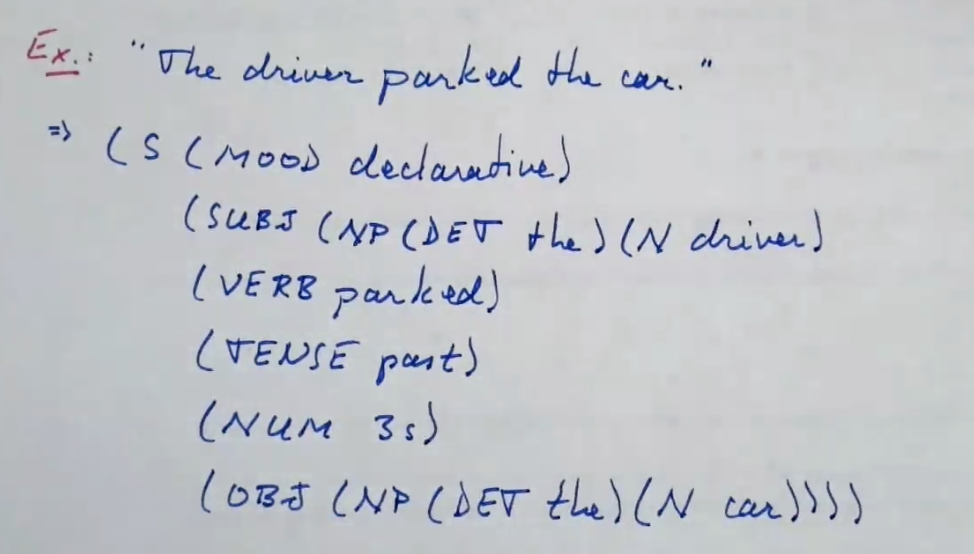 Ex.: "The driver parked the car."
=> (S (MOOD declarative)
(SUBJ (NP (DET the) (N driver)
(VERB parked)
(TENSE past)
(NUM 3s)
(OBJ (NP (DET the) (N car))))